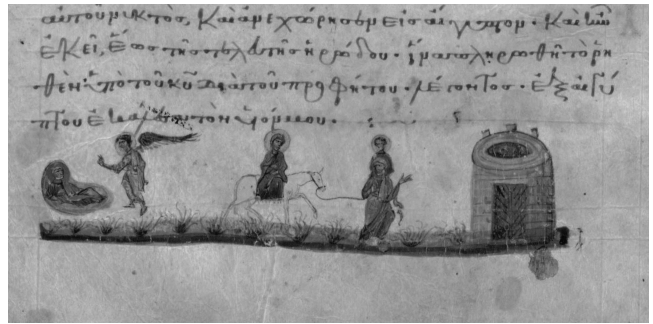 αὐτοῦ νυκτὸς, καὶ ἀνεχώρησεν εἰς αἴγυπτον· καὶ ἦν
ἐκεῖ, ἕως τῆς τελευτῆς ἡρώδου· ἵνα πληρωθῆ τὸ ῥη
θὲν ὑπὸ τοῦ κ̅υ̅ διὰ τοῦ προφήτου· λέγοντος· ἐξ αἰγύ
πτου ἐκάλεσα τὸν υἱόν μου·